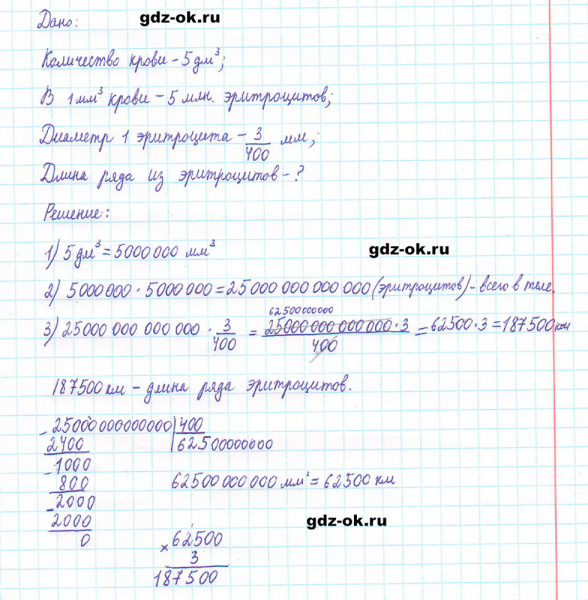 gdz-ok.ru
Дано:
Количество крови – 5 дм³;
В 1 мм³ крови – 5 млн. эритроцитов;
Диаметр 1 эритроцита – 3/400 мм;
Длина ряда из эритроцитов – ?
Решение:
gdz-ok.ru
1) 5 дм³ = 5000000 мм³
2) 5000000 · 5000000 = 25000000000000 (эритроцитов) – всего в теле.
62500000000
3) 25000 000 000 000 · 3/400 = 25000 000 000 000 · 3/400 = 62500 · 3 = 187500 км
187500 км – длина ряда эритроцитов.
- 25000000000000 | 400
2400 | 62500000000
- 1000
800
62500 000 000 мм³ = 62500 км
- 2000
2000
gdz-ok.ru
0
× 62500
3
187500